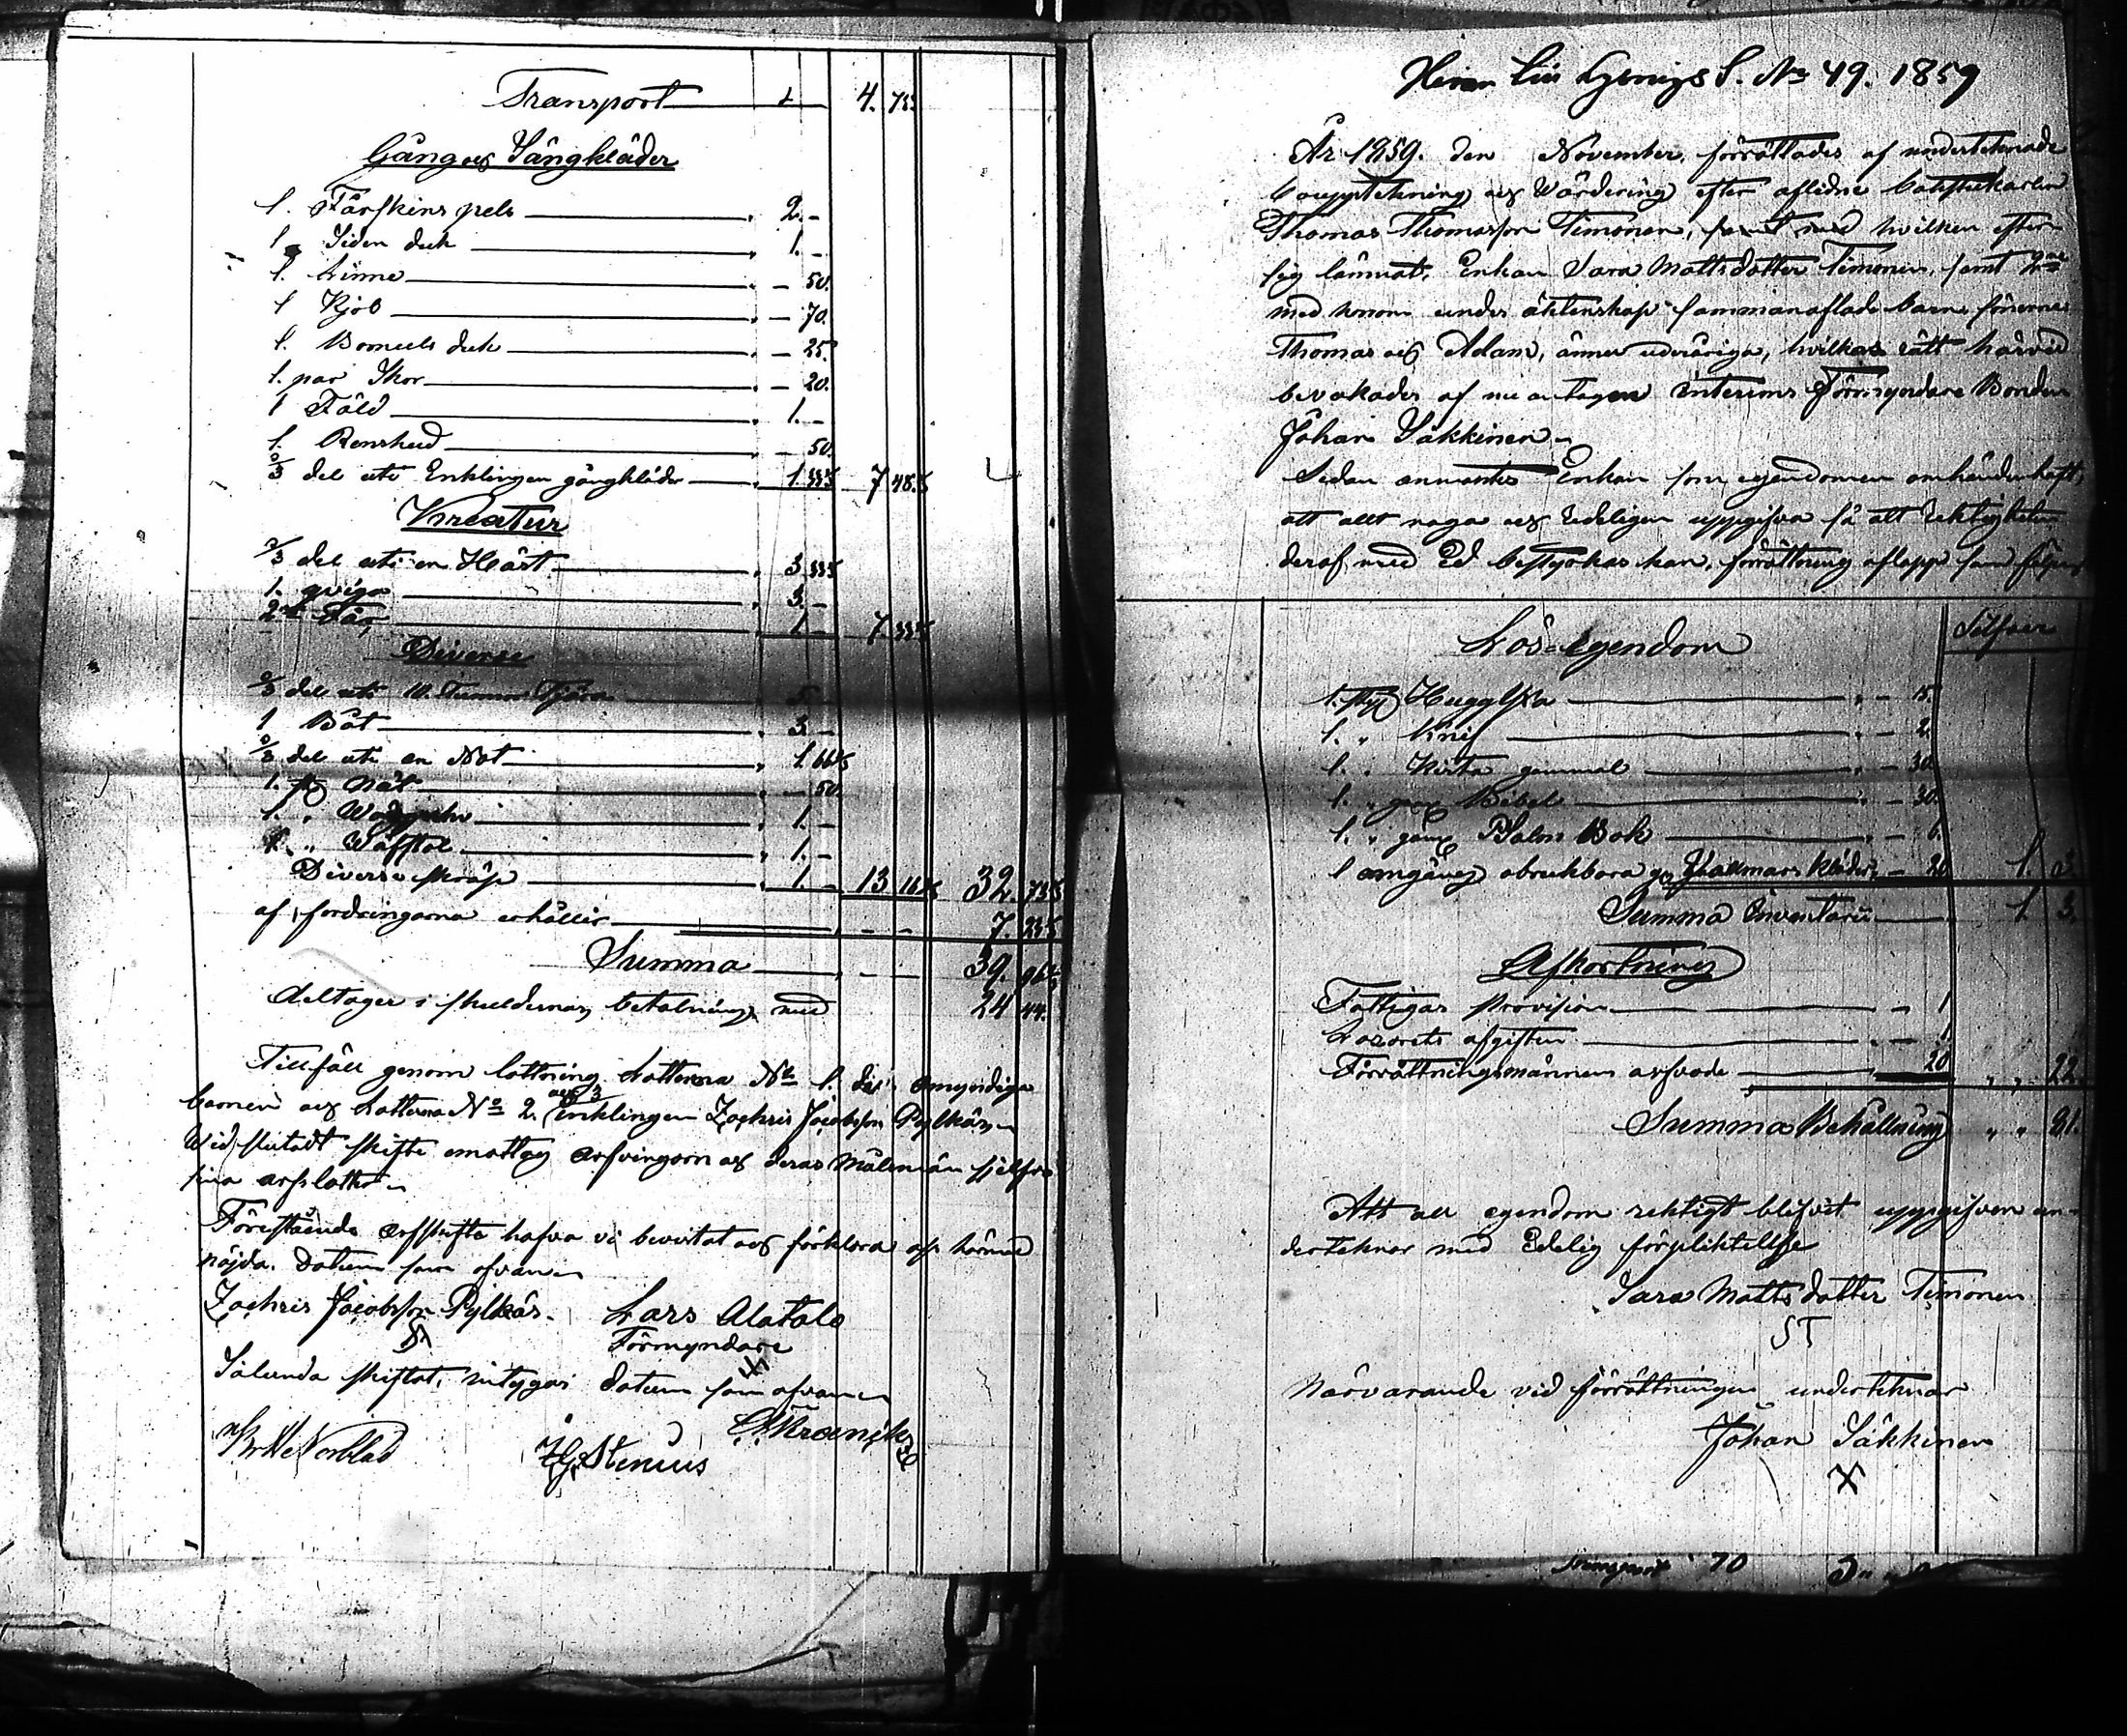 Transport 4. 733
Gång och Sängkläder
1. Fårskins pels 2. -
1. Siden duk 1. -
1. Linne - 50.
1 Kjol - 70.
1. Bomuls duk - 25.
1. par Skor - 20.
1 Fäld 1. -
1. Renshud - 50.
2/3 del uti Enklingen gångkläder 1.33⅓ 7 48.⅓
Kreatur
2/3 del uti en Häst 3 33⅓
1. qviga 3. -
2ne Får, 1. - 7 33⅓
Diverse
2/3 del uti 10. Tunnor Tjära 5 -
1 Båt 3 -
2/3 del uti en Not 1 66⅔
1. st Nät - 50
1. " 1. -
1. " Wäfstol 1. -
Diverse skräp 1. - 13 16⅔ 32. 73⅓
af fordringarna erhåller 7. 23⅓
Summa 39. 96⅔
deltager i skuldernas betalning med 24 44.
Tillföll genom lottning Lotterna No 1. de omyndiga
barnen och Lotterna No 2. och 3 Enklingen Zachris Jacobsson Pylkäs
Wid slutadt skifte emottog arfvingarn och deras målsmän sjelfva
sina arfslotter
Förestående arfskifte hafva vi bevistat och förklara oss härmed
nöjda. Datum som ofvan
Zachris Jacobsson Pylkäs. Lars Alatalo
Förmyndare
Sålunda skiftat, intygar Datum som ofvan
Norblad
Stenius
No 49. 1859
År 1859. den November, förrättades af undertecknade
bouppteckning och Wärdering efter aflidne
Thomas Thomasson Timonen, hvilken efter
sig lämnat, Enkan Sara Mattsdotter Timonen, samt 2ne
med honom under äktenskap sammanaflade barn sönerne
Thomas och Adam, ännu omyndiga, hvilkas rätt härvid
bevakades af nu antagen interims Förmyndare Bonden
Johan Säkkinen
Sedan anmantes Enkan som egendomen omhänderhaft,
att allt noga och Edeligen uppgifva så att riktigheten
deraf med Ed bestyrkas kan, förrättning aflopp som följer
Lös egendom Silfver
1. styk Huggyxa " - 15.
1. " Knif " - 2.
1. " gammal " - 30
1. " gam Bibel " - 30.
1. " gam Psalm Bok " - 6.
1 omgång obrukbara Wallmars Kläder - 20 1. 3.
Summa Inventarii 1. 3.
Afkortning
Fattigas Provision - 1
Lazarets afgiften - 1
Förrättningsmännens arfvode 20 " " 22
Summa Behållning " " 81.
Att all egendom rektigt blifvit uppgifven un-
derteknar med Edelig förpliktellse
Sara Matts dotter Timonen
ST
Närvarande vid förrättningen underteknar
Johan Säkkinen
X
Transport 70